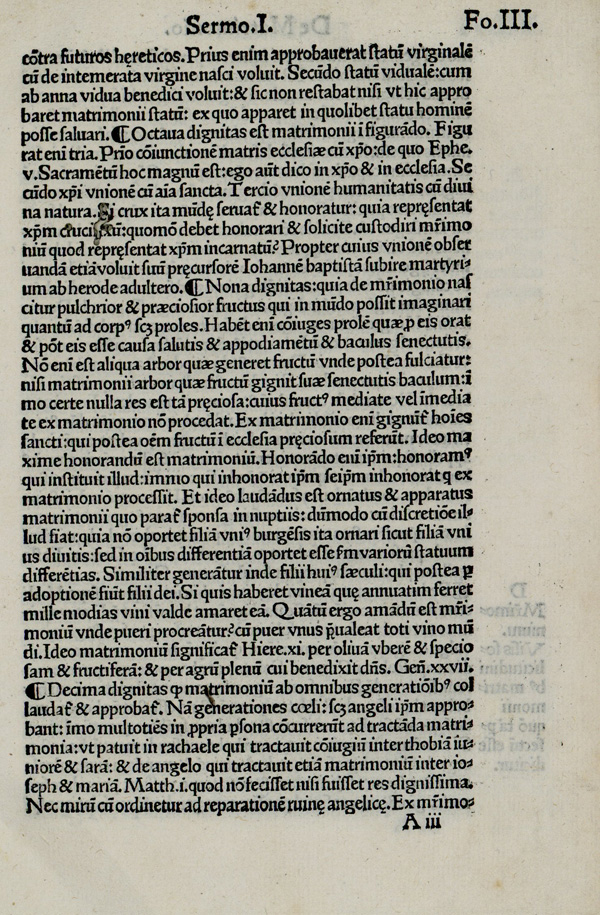 Sermo.I. Fo.III.
cõtra futuros hęreticos. Prius enim approbauerat statũ virginalẽ
cũ de intemerata virgine nasci voluit. Secũdo statũ vidualẽ: cum
ab anna vidua benedici voluit: & sic non restabat nisi vt hic appro
baret matrimonii statũ: ex quo apparet in quolibet statu hominẽ
posse saluari. ¶ Octaua dignitas est matrimonii ĩ figurãdo. Figu
rat eni tria. Prĩo cõiunctionẽ matris ecclesiæ cũ xp̃o: de quo Ephe.
v. Sacramẽtũ hoc magnũ est: ego aũt dico in xp̃o & in ecclesia. Se
cũdo xp̃i vnionẽ cũ aĩa sancta. Tercio vnionẽ humanitatis cũ diui
na natura. Si crux ita mũdę seruat̃ & honoratur: quia repręsentat
xp̃m crucifixũ: quomõ debet honorari & solicite custodiri mr̃imo
niũ quod repręsentat xp̃m incarnatũ? Propter cuius vnionẽ obser
uandã etiã voluit suũ pręcursorẽ Iohannẽ baptistã subire martyri⸗
um ab herode adultero. ¶ Nona dignitas: quia de mr̃imonio nas
citur pulchrior & præciosior fructus qui in mũdo possit imaginari
quantũ ad corpꝰ scʒ proles. Habẽt eni cõiuges prolẽ quæ ꝓ eis orat
& põt eis esse causa salutis & appodiamẽtũ & baculus senectutis.
Nõ eni est aliqua arbor quæ generet fructũ vnde postea fulciatur:
nisi matrimonii arbor quæ fructũ gignit suæ senectutis baculum: ĩ
mo certe nulla res est tã pręciosa: cuius fructꝰ mediate vel ĩmedia
te ex matrimonio nõ procedat. Ex matrimonio eni gignũt̃ hoĩes
sancti: qui postea oẽm fructũ ĩ ecclesia pręciosum referũt. Ideo ma
xime honorandũ est matrimoniũ. Honorãdo eni ip̃m: honoramꝰ
qui instituit illud: immo qui inhonorat ip̃m seip̃m inhonorat q ex
matrimonio processit. Et ideo laudãdus est ornatus & apparatus
matrimonii quo parat̃ sponsa in nuptiis: dũmodo cũ discretiõe il⸗
lud fiat: quia nõ oportet filiã vniꝰ burgẽsis ita ornari sicut filiã vni
us diuitis: sed in oĩbus differentiã oportet esse s̃m variorũ statuum
differẽtias. Similiter generãtur inde filii huiꝰ sæculi: qui postea ꝑ
adoptionẽ fiũt filii dei. Si quis haberet vineã quę annuatim ferret
mille modias vini valde amaret eã. Quãtũ ergo amãdũ est mr̃i⸗
moniũ vnde pueri procreãtur? cũ puer vnus p̃ualeat toti vino mũ
di. Ideo matrimoniũ significat̃ Hiere.xi. per oliuã vberẽ & specio
sam & fructiferã: & per agrũ plenũ cui benedixit dñs. Geñ.xxvii.
¶ Decima dignitas ꝙ matrimoniũ ab omnibus generatiõibꝰ col
laudat̃ & approbat̃. Nã generationes cœli: scʒ angeli ip̃m appro⸗
bant: ĩmo multotiẽs in ꝓpria ꝑsona cõcurrerũt ad tractãda matri⸗
monia: vt patuit in rachaele qui tractauit cõiugiũ inter thobiã iu⸗
niorẽ & sarã: & de angelo qui tractauit etiã matrimoniũ inter io⸗
seph & mariã. Matth.i. quod nõ fecisset nisi fuisset res dignissima.
Nec mirũ cũ ordinetur ad reparationẽ ruinę angelicę. Ex mr̃imo⸗
A iii